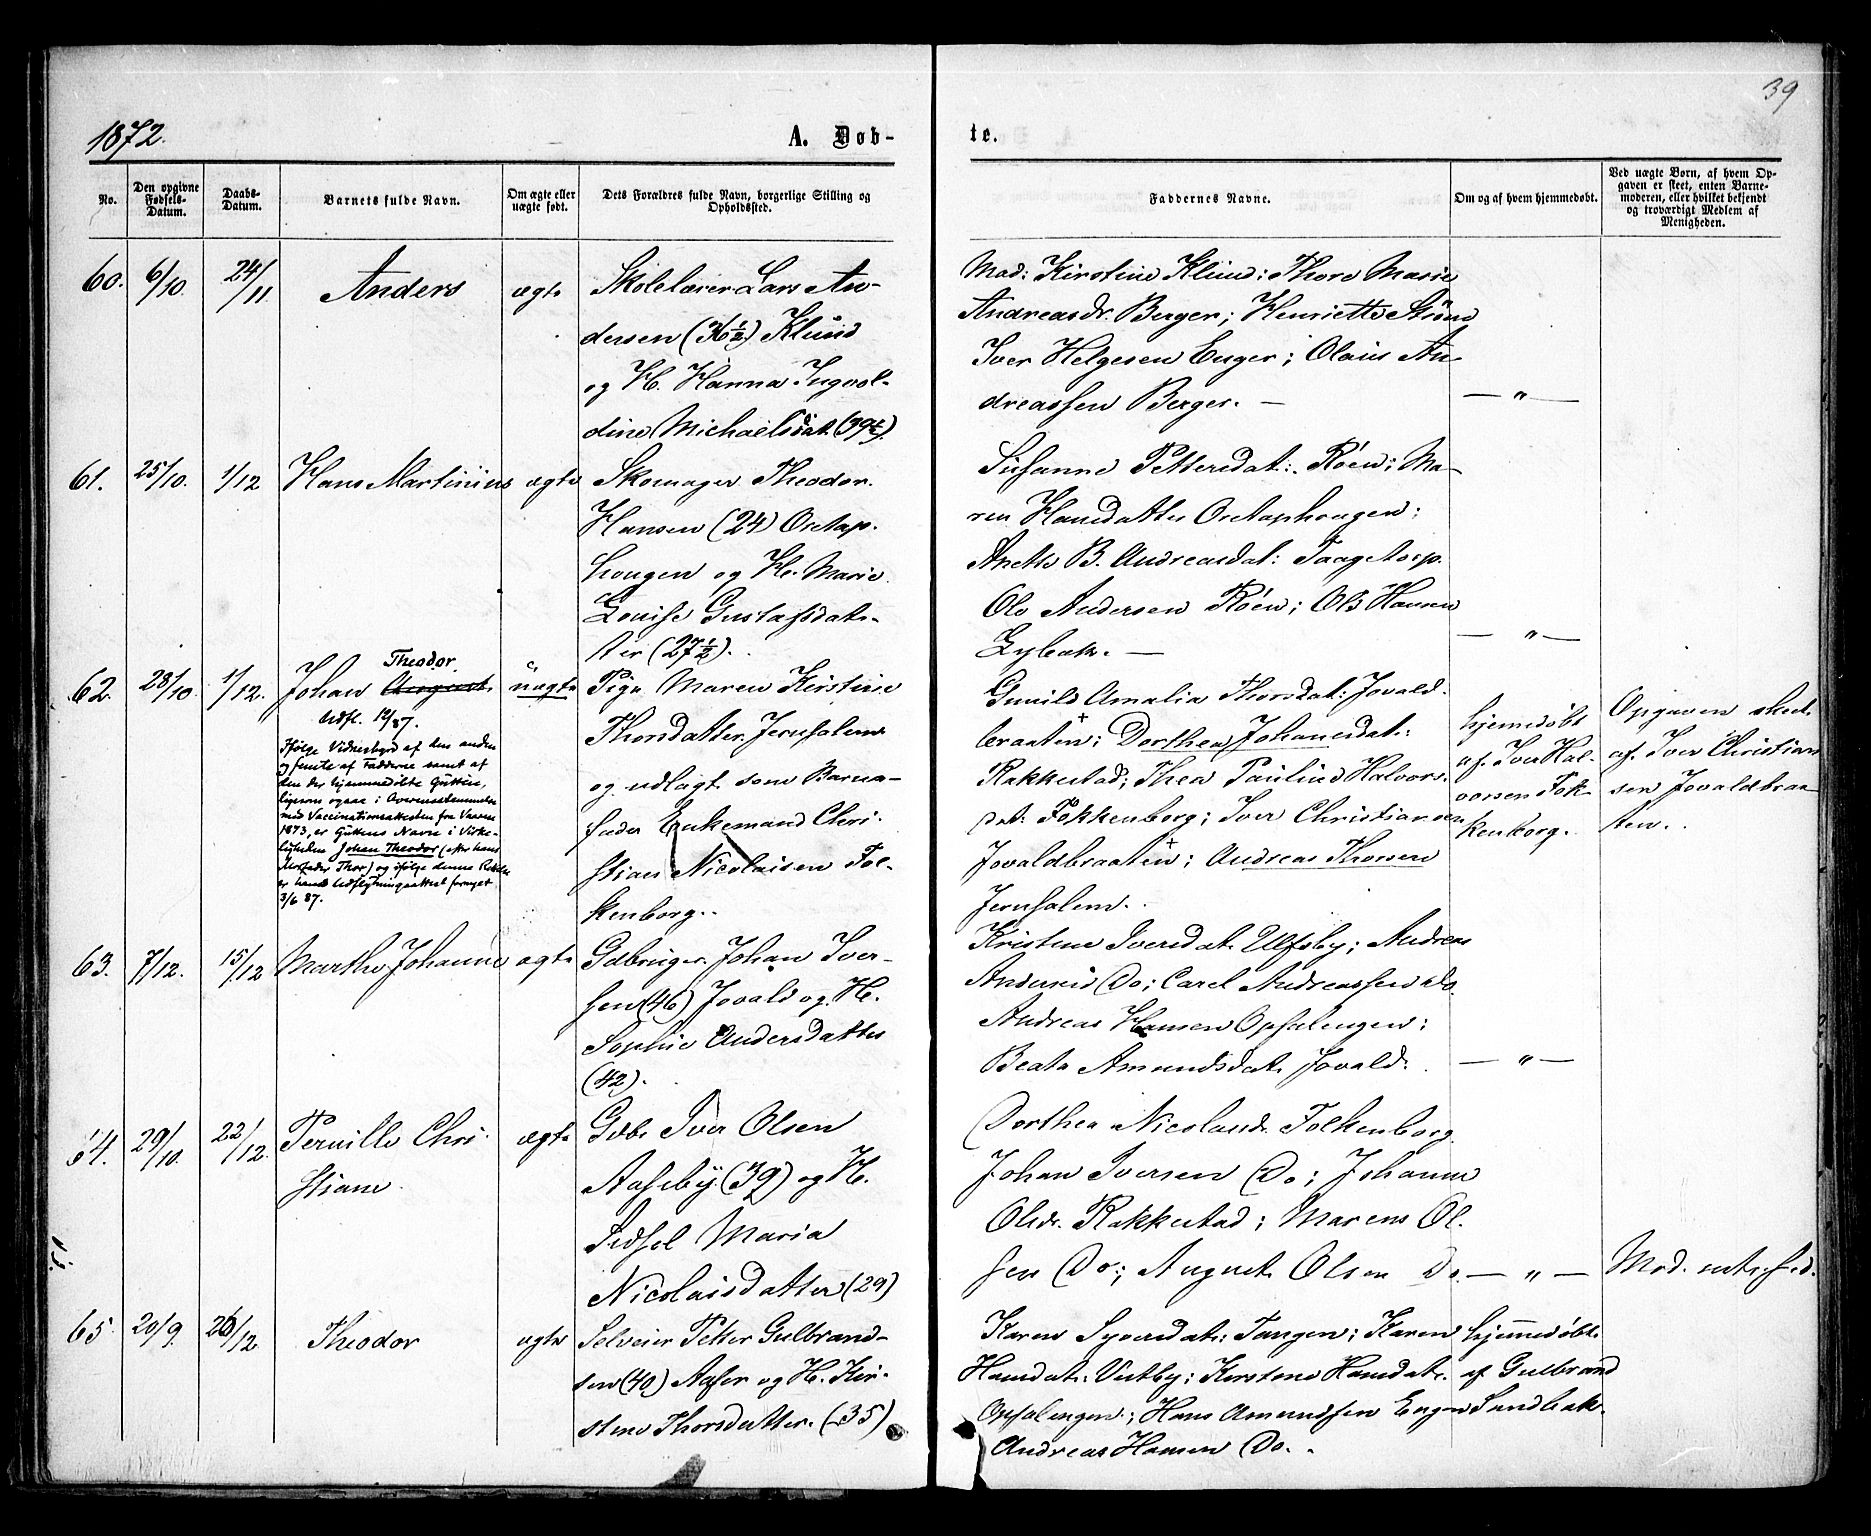 39
1872.
A. Døb-
te.
No.
Den opgivne Fødsels-Datum.
Daabs-Datum.
Barnets fulde Navn.
Om ægte eller uægte født.
Dets Forældres fulde Navn, borgerlige Stilling og Opholdssted.
Faddernes Navne.
Om og af hvem hjemmedøbt.
Ved uægte Børn, af hvem Op-
gaven er skeet, enten Barne-
moderen, eller hvilket bekjendt
og troværdigt Medlem af
Menigheden.
60. 6/10. 24/11 Anders ægte
Skolelærer Lars An-
dersen (36½) Klund
og H. Hanna Ingvol-
dine Michaelsdat.
Mad: Kirstine Klund: Thore Marie
Andreasdr. Berger; Henriette
Iver Helgesen Enger; Olaus An-
dreassen Berger. —
— " —
61. 25/10. 1/12 Hans Martinius ægte
Skomager Theodor
Hansen (24) Oretop-
hougen og H. Marie
Louise Gustafsdat-
ter (27½).
Susanne Pettersdat: Röen; Ma-
ren Hansdatter Oretophougen;
Anette B. Andreasdat:
Ole Andersen Röen; Ole Hansen
— " —
62. 28/10. 1/12. Johan Theodor uægte
Udfl. 12/87.
Ifölge Vidnesbyrd af den anden
og femte af Fadderne samt af
den der hjemmedöbte Gutten,
ligesom ogsaa i Overensstemmelse
med Vaccinationsattesten fra Vaaren
1873, er Guttens Navn i Virke-
ligheden Johan Theodor (efter hans
Morfader Thor) og ifölge denne
er hans Udflytningsattest forsynet
3/6 87.
Pige Maren Kirstine
Thorsdatter Jerusalem
og udlagt som Barna-
fader Enkemand Chri-
stian Nicolaisen Fol-
kenborg.
Gunild Amalia Thorsdat: Jovald-
braaten; Dorthea Johannesdat:
Rakkestad; Thea Pauline Halvors-
dat: Folkenborg; Iver Christiansen
Jovaldbraaten; Andreas Thorsen
Jerusalem.
Hjemmedöbt
af Iver Hal-
vorsen Fol-
kenborg.
Opgaven skeet
af Iver Christian
sen Jovaldbraa-
ten.
63. 7/12. 15/12 Marthe Johanne ægte
Gdbruger Johan Iver-
sen (46) Jovald og H.
Sophie Andersdatter
(42).
Kristine Iversdat. Ulfsby; Andreas
Do; Carel Andreassen Do
Andreas Hansen Opsalengen;
Beata Amundsdat. Jovald.
— " —
64. 29/10. 22/12. Pernille Chri-
stiane. ægte
Gdbr Iver Olsen
Aaseby (39) og H.
Sidsel Maria
Nicolaisdatter (29)
Dorthea Nicolaisdr. Folkenborg
Johan Iversen Do; Johanne
Olsdr. Rakkestad; Marens Ol-
sen Do; August Olsen Do. — " —
65. 20/9. 26/12 Theodor ægte
Selveier Petter Gulbrand-
sen (40) Aaser og H. Kir-
stine Thorsdatter. (35)
Karen Syversdat: Tangen; Karen
Hansdat: Vestby; Kirstine Hansdat.
Opsalengen; Hans Amundsen Enger
Andreas Hansen Do.
Hjemmedöbt
af Gulbrand
Sandbak.